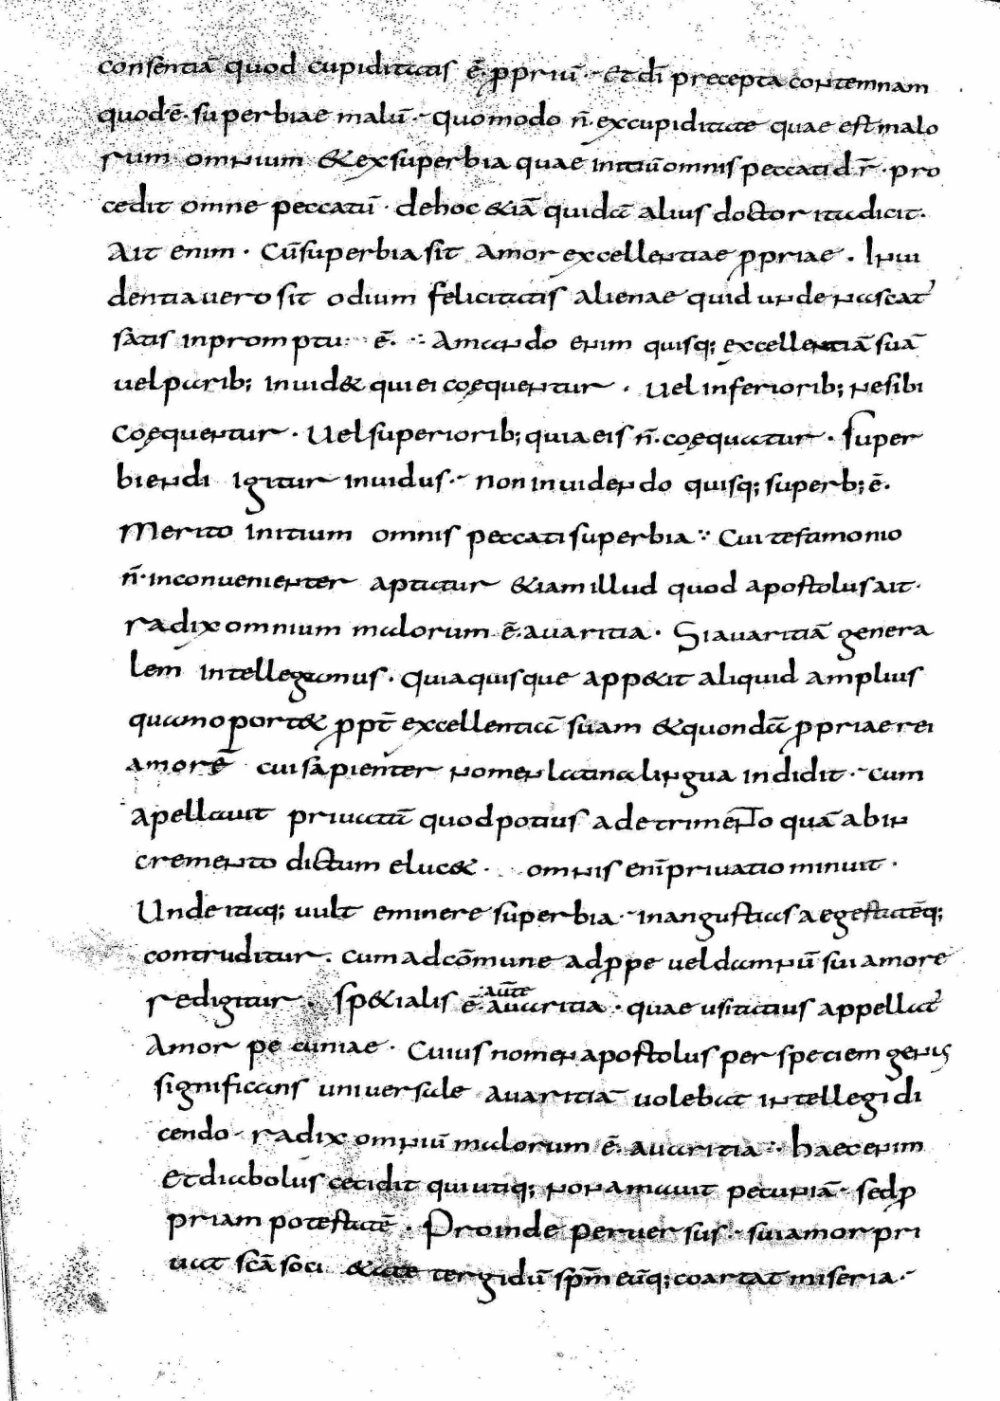 consentiā quod cupiditatis ē. ꝓpriū. Et dī precepta contemnam
quod ē. superbiae malū. quomodo n̄. ex cupiditate quae est malo
rum omnium & ex superbia quae initiū omnis peccati dr̄. pro
cedit omne peccatū. de hoc &iā quidā alius doctor ita dicit.
Ait enim. Cū superbia sit amor excellentiae ꝓpriae. Inui
dentia uero sit odium felicitatis alienae quid unde nascat̄
satis in promptu ē. Amando enim quisq; excellentiā suā
uel parib; inuid& qui ei coęquentur. Uel inferiorib; ne sibi
coęquentur. Uel superiorib; quia eis n̄. coęquatur. Super
biendi igitur inuidus. non inuidendo quisq; superb; ē.
Merito initium omnis peccati superbia. Cui testimonio
n̄. inconuenienter aptatur &iam illud quod apostolus ait.
radix omnium malorum ē. auaritia. Si auaritiā genera
lem intellegamus. Quia quisque app&it aliquid amplius
quam oport& ꝓpt̄ excellentiā suam & quondā ꝓpriae rei
amorē cui sapienter nomen latina lingua indidit. cum
apellauit priuatū quod potius a detrimento quā ab in
cremento dictum eluc&. omnis enī priuatio minuit.
Unde itaq; uult eminere superbia. in angustias aegestatēq;
contruditur. cum ad cōmune ad ꝓpe uel damnū sui amore
redigitur. Sp&ialis ē. aūte auaritia. quae usitatius appellat̄
Amor pecuniae. Cuius nomen apostolus per speciem generis
significans uniuersale auaritiā uolebat intellegi di
cendo. radix omniū malorum ē. auaritia. haec enim
Et diabolus cecidit qui utiq; non amauit pecuniā. sed ꝓ
priam potestatē. Proinde peruersus. sui amor pri
uat scā soci&ate tergidū spm̄ eūq; coartat miseria.